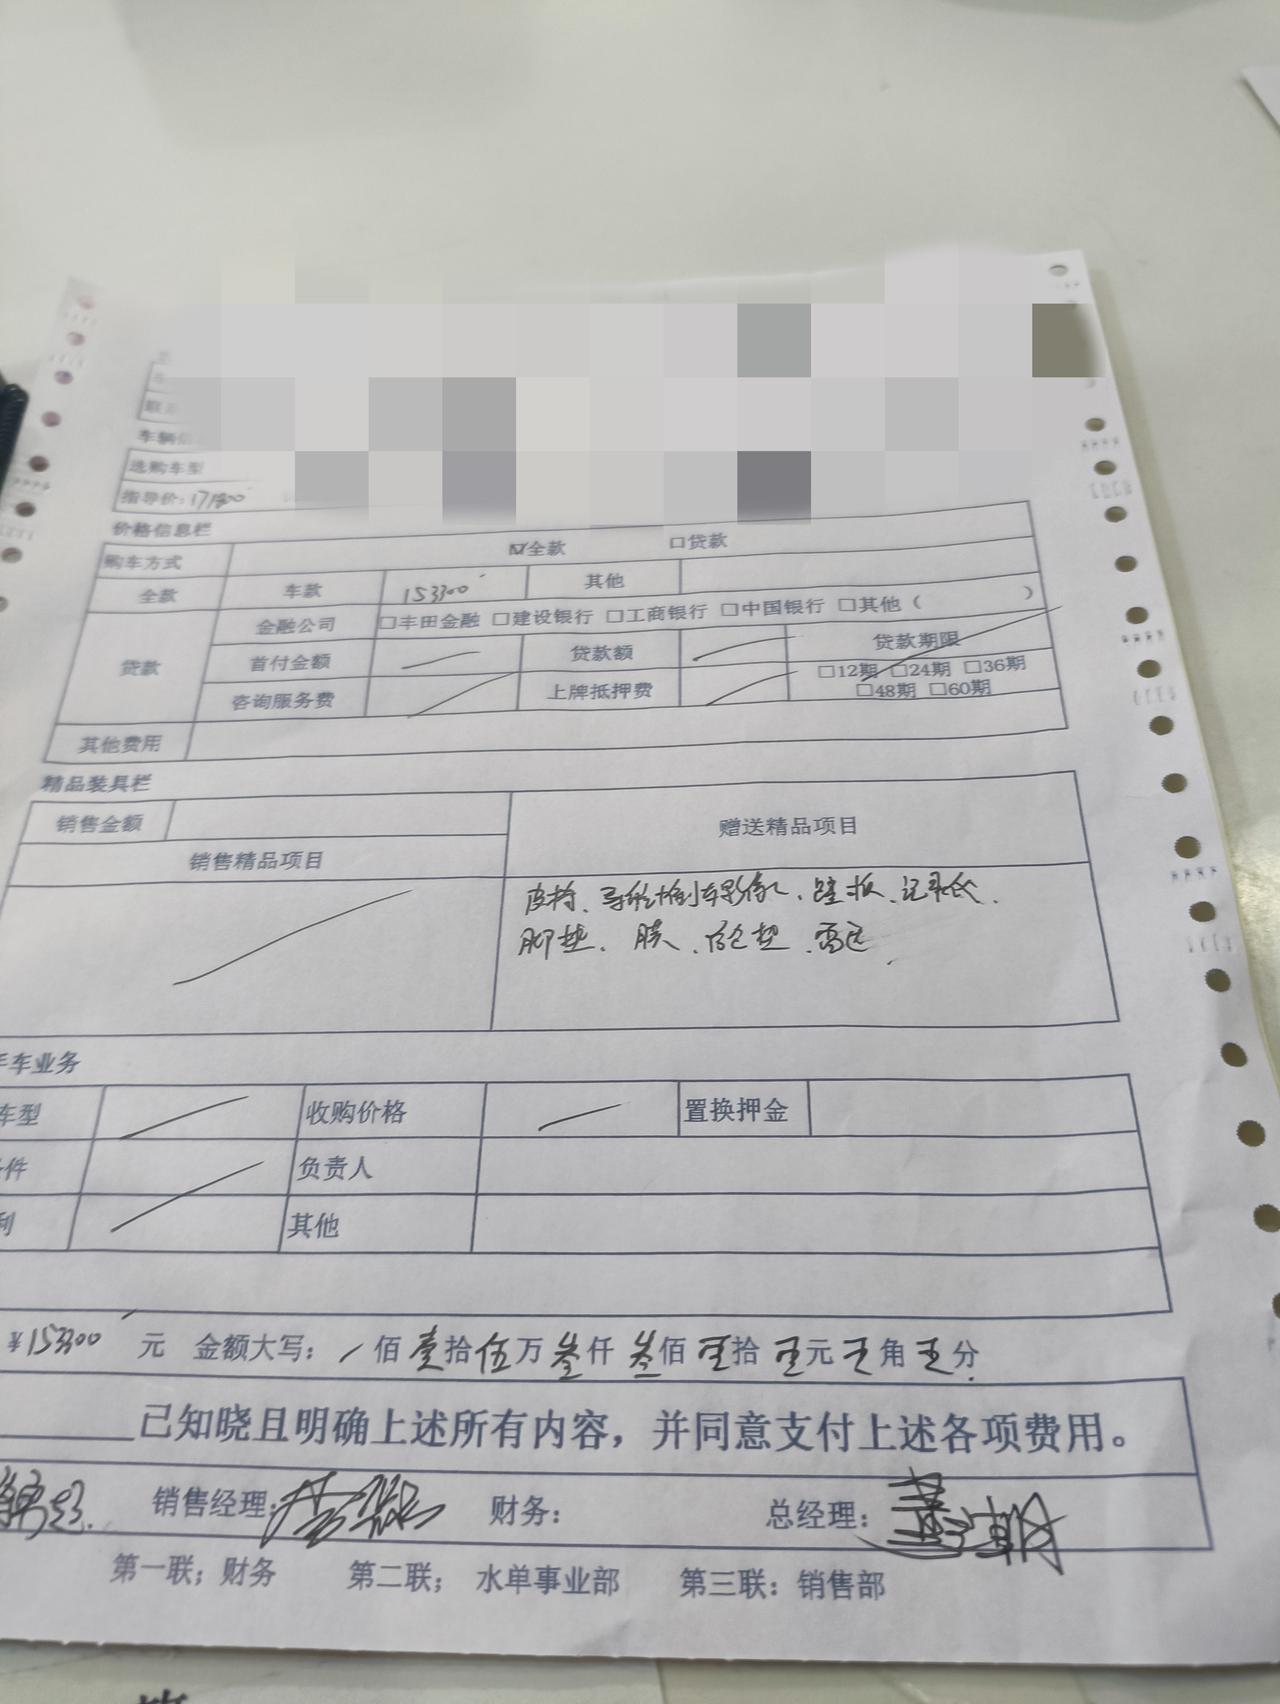 车辆信
选购车型
指导价：171800
价格信息栏
购车方式 ☑全款 □贷款
全款 车款 153300 其他
贷款 金融公司 □丰田金融 □建设银行 □工商银行 □中国银行 □其他（ ）
首付金额 贷款额 贷款期限
□12期 □24期 □36期
咨询服务费 上牌抵押费 □48期 □60期
其他费用
精品装具栏
销售金额 赠送精品项目
销售精品项目
导航、倒车影像、踏板、记录仪、
脚垫、膜、后仓垫、雷达
手车业务
车型 收购价格 置换押金
件 负责人
利 其他
¥153300 元 金额大写： 佰壹拾伍万叁仟叁佰 拾 元 角 分
已知晓且明确上述所有内容，并同意支付上述各项费用。
销售经理： 财务： 总经理：
第一联；财务 第二联； 水单事业部 第三联：销售部